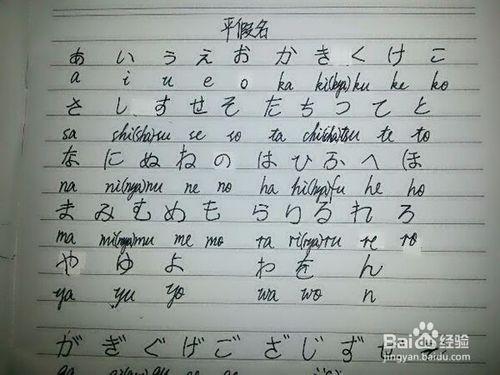 平假名
あ い う え お か き く け こ
a i u e o ka ki(kya) ku ke ko
さ し す せ そ た ち つ て と
sa shi(sha) su se so ta chi(cha) tsu te to
な に ぬ ね の は ひ ふ へ ほ
na ni(nya) nu ne no ha hi(hya) fu he ho
ま み む め も ら り る れ ろ
ma mi(mya) mu me mo ra ri(rya) ru re ro
や ゆ よ わ を ん
ya yu yo wa wo n
が ぎ ぐ げ ご ざ じ ず ぜ ぞ
Baidu经验
jingyan.baidu.com